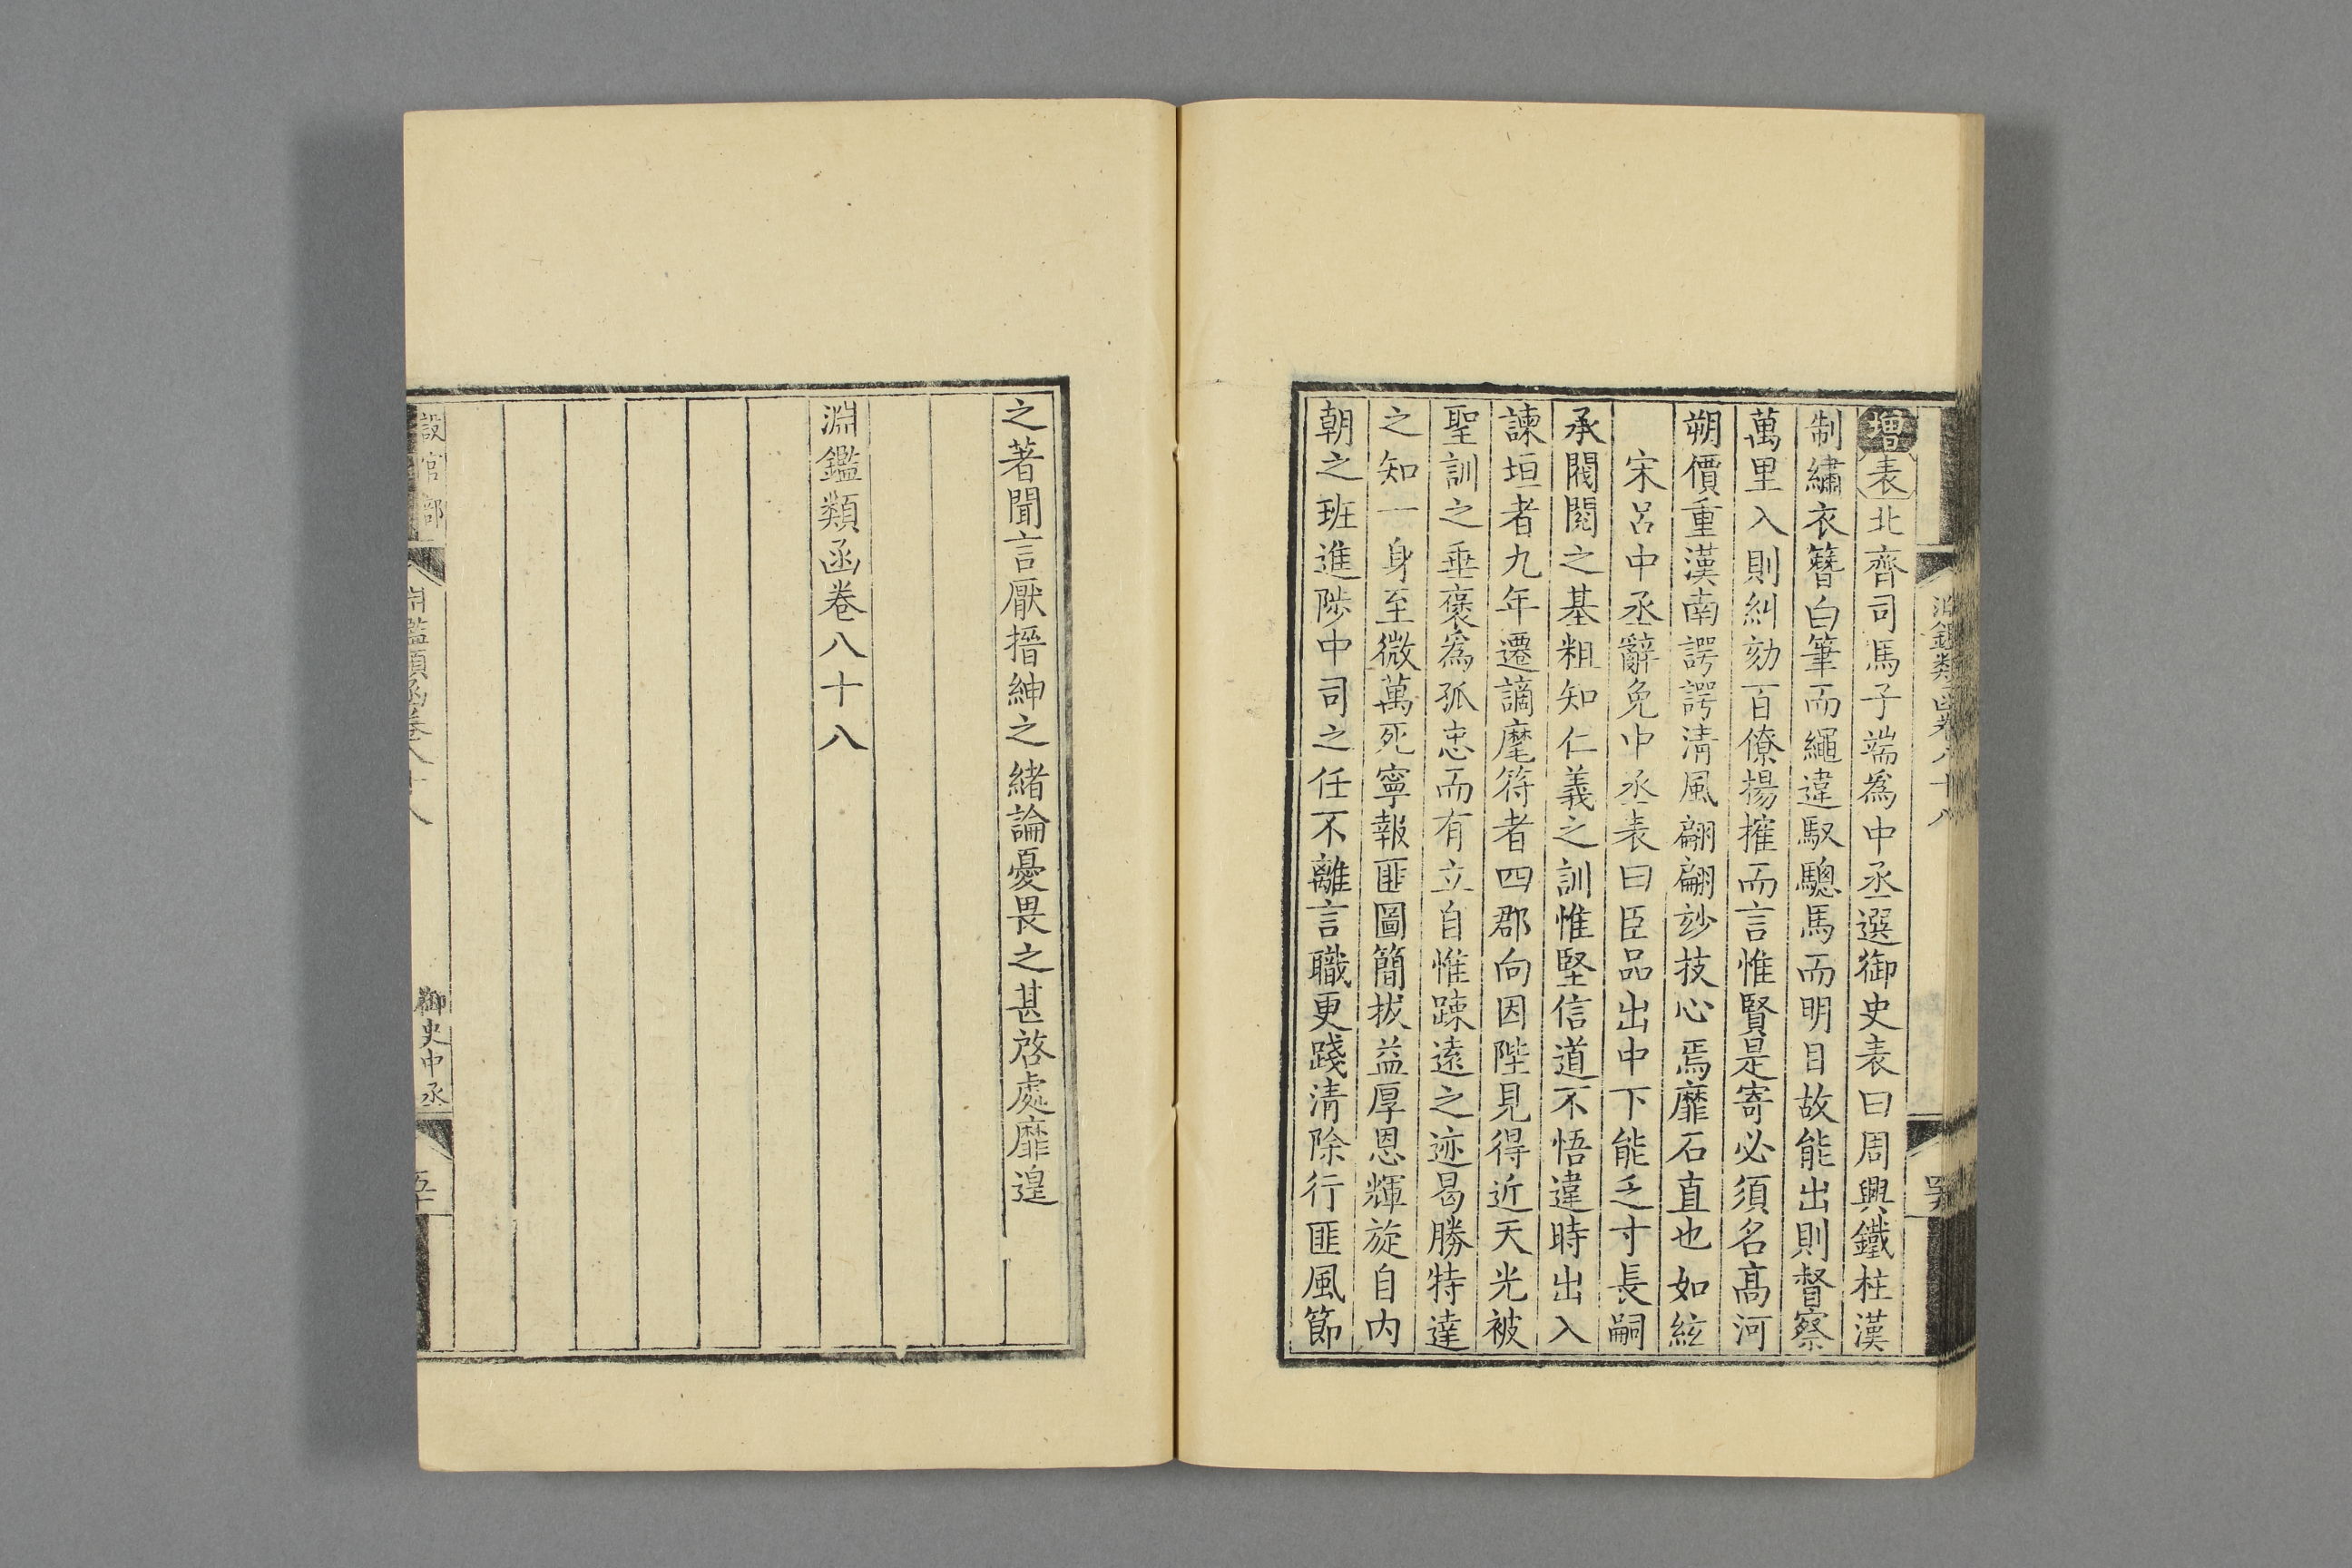 增表北齊司馬子端爲中丞選御史表曰周興鐵柱漢
制繡衣簪白筆而繩違馭驄馬而明目故能出則督察
萬里入則糾劾百僚揚搉而言惟賢是寄必須名高河
朔價重漢南諤諤清風翩翩妙技心焉靡石直也如絃
宋呂中丞辭免中丞表曰臣品出中下能乏寸長嗣
承閥閱之基粗知仁義之訓惟堅信道不悟違時出入
諫垣者九年遷謫麾符者四郡向因陛見得近天光被
聖訓之垂褒爲孤忠而有立自惟踈遠之迹曷勝特達
之知一身至微萬死寧報匪圖簡拔益厚恩輝旋自内
朝之班進陟中司之任不離言職更踐清除行匪風節
淵鑑類函卷八十八
之著聞言厭搢紳之緒論憂畏之甚啓處靡遑
淵鑑類函卷八十八
設官部
淵鑑類函卷八十八
御史中丞
五十